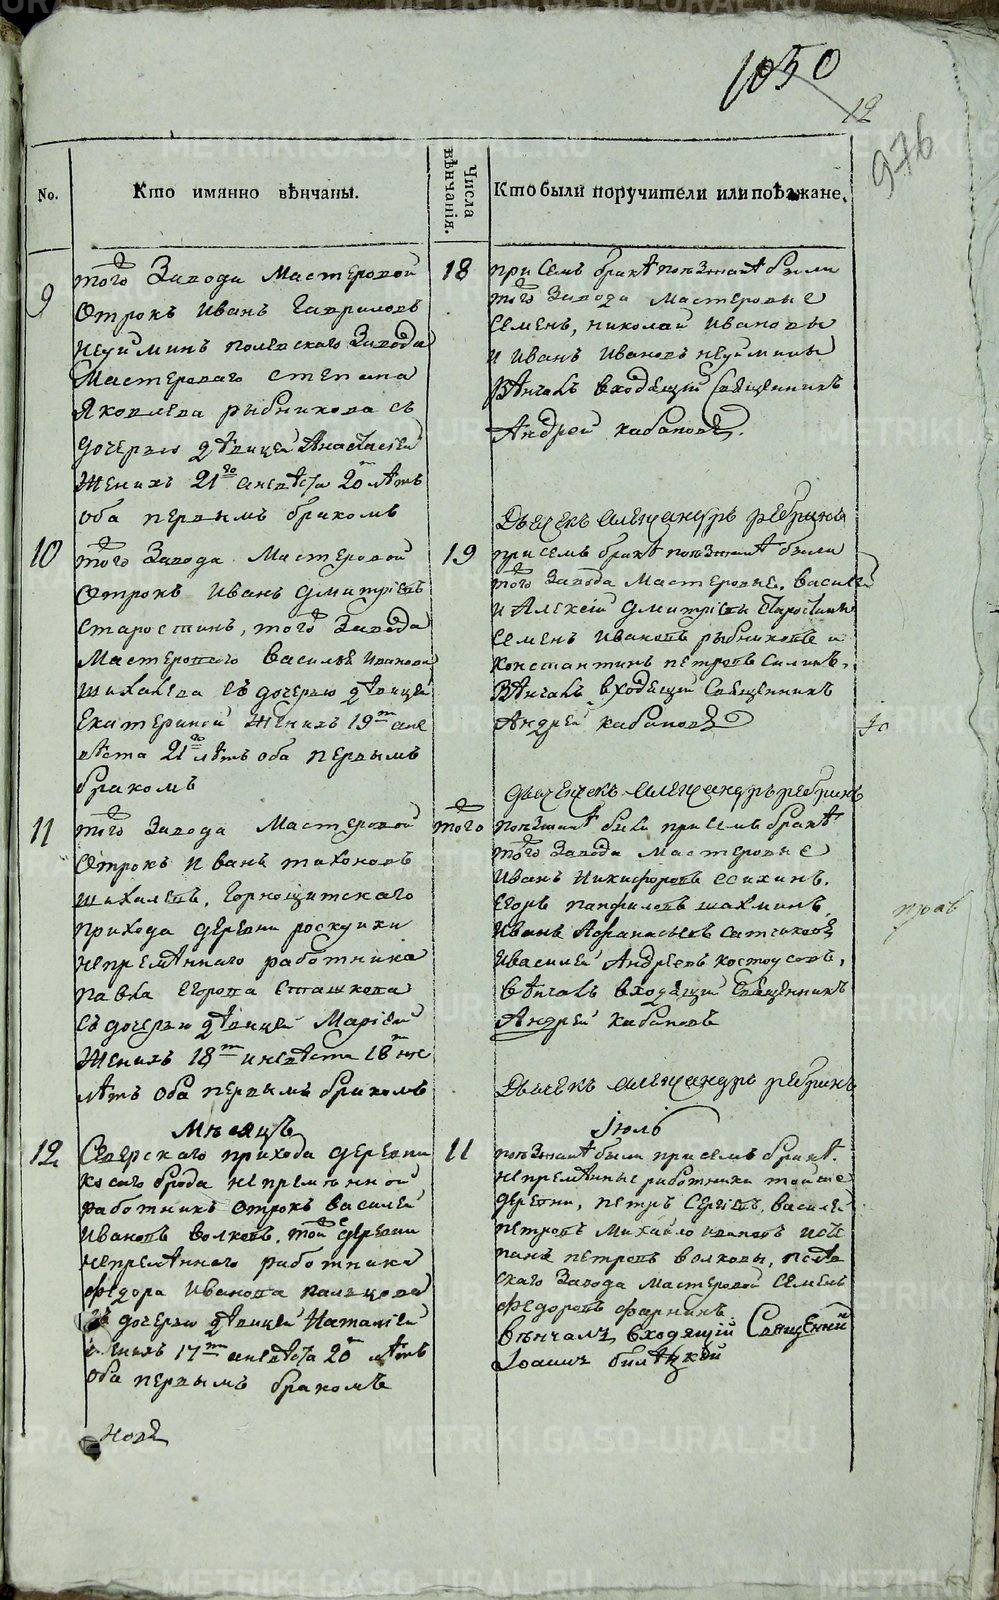 1050
12
976
No.
Кто имянно вѣнчаны.
Числа вѣнчанія.
Кто были поручители или поѣзжане.
9
того Завода Мастеровой
отрокъ Иванъ Гавриловъ
неуйминъ полевскаго Завода
Мастероваго степана
Яковлева рыбникова съ
дочерью дѣвицей Анастасіей
Женихъ 21го а невѣста 20т лѣтъ
оба первымъ бракомъ
18
при семъ бракѣ поезжанѣ были
того Завода мастеровые
семенъ, николай Ивановы
и Иванъ Ивановъ неуймины
Вѣнчалъ входящій Священникъ
Андрей кабаковъ.
Дьячекъ Александръ ребринъ
10
того Завода Мастеровой
отрокъ Иванъ Дмитріевъ
старостинъ, того Завода
Мастероваго василья Иванова
шихалева съ дочерью дѣвицей
Екатериной Женихъ 19т а не
вѣста 21го лѣтъ оба первымъ
бракомъ
19
при семъ бракѣ поезжанѣ были
того Завода Мастеровые, василей
и Алексій Дмитріевы Старостины
семенъ Ивановъ рыбниковъ и
константинъ петровъ силинъ,
Вѣнчалъ входящій Священникъ
Андрей кабаковъ
Дьячекъ Александръ ребринъ
11
того Завода Мастеровой
отрокъ Иванъ тихоновъ
шихалевъ, Горнощитскаго
прихода деревни роскуихи
непремѣннаго работника
павла егорова
съ дочерью дѣвицей Маріей
Женихъ 18т и невѣста 18т же
лѣтъ оба первымъ бракомъ
того
поезжанѣ были при семъ бракѣ
того Завода Мастеровые
Иванъ Никифоровъ
Егоръ панфиловъ шахминъ,
Иванъ Афанасьевъ
и василей Андреевъ костоусовъ,
вѣнчалъ входящій Священникъ
Андрей кабаковъ
Дьячекъ Александръ ребринъ
Мѣсяцъ
Іюль
12
Северскаго прихода деревни
косаго брода непремѣнной
работникъ отрокъ василей
Ивановъ волковъ, той же деревни
непремѣннаго работника
федора Иванова
съ дочерью дѣвицей Наталіей
Женихъ 17т а невѣста 20т лѣтъ
оба первымъ бракомъ
11
поезжанѣ были при семъ бракѣ
непремѣнные работники той же
деревни, петръ Сергѣевъ, василей
петровъ Михайло Ивановъ и сте
панъ петровъ волковы, полев
скаго Завода мастеровой семенъ
федоровъ
Вѣнчалъ входящій Священникъ
Іоаннъ билѣцкой